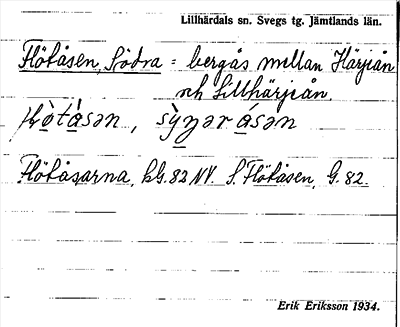 Lillhärdals sn. Svegs tg. Jämtlands län.
Flötåsen, Södra = bergås mellan Härjån
och Lillhärjeån.
Flötåsarna, kG.82 NV. S. Flötåsen, G. 82.
Erik Eriksson 1934.